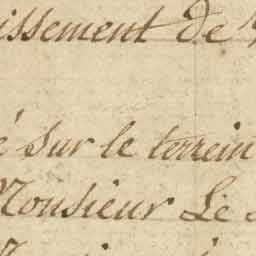 issement de
é sur le terrein
Monsieur Le